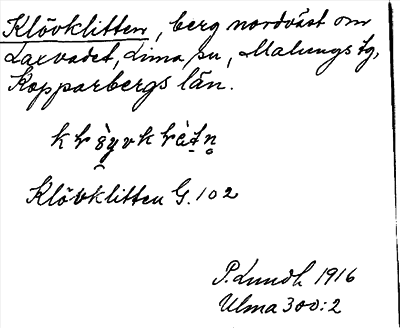 Klövklitten, berg nordväst om
Laxvadet, Lima sn, Malungs tg,
Kopparbergs län.
Klövklitten G. 102
P. Lundh 1916
Ulma 300:2